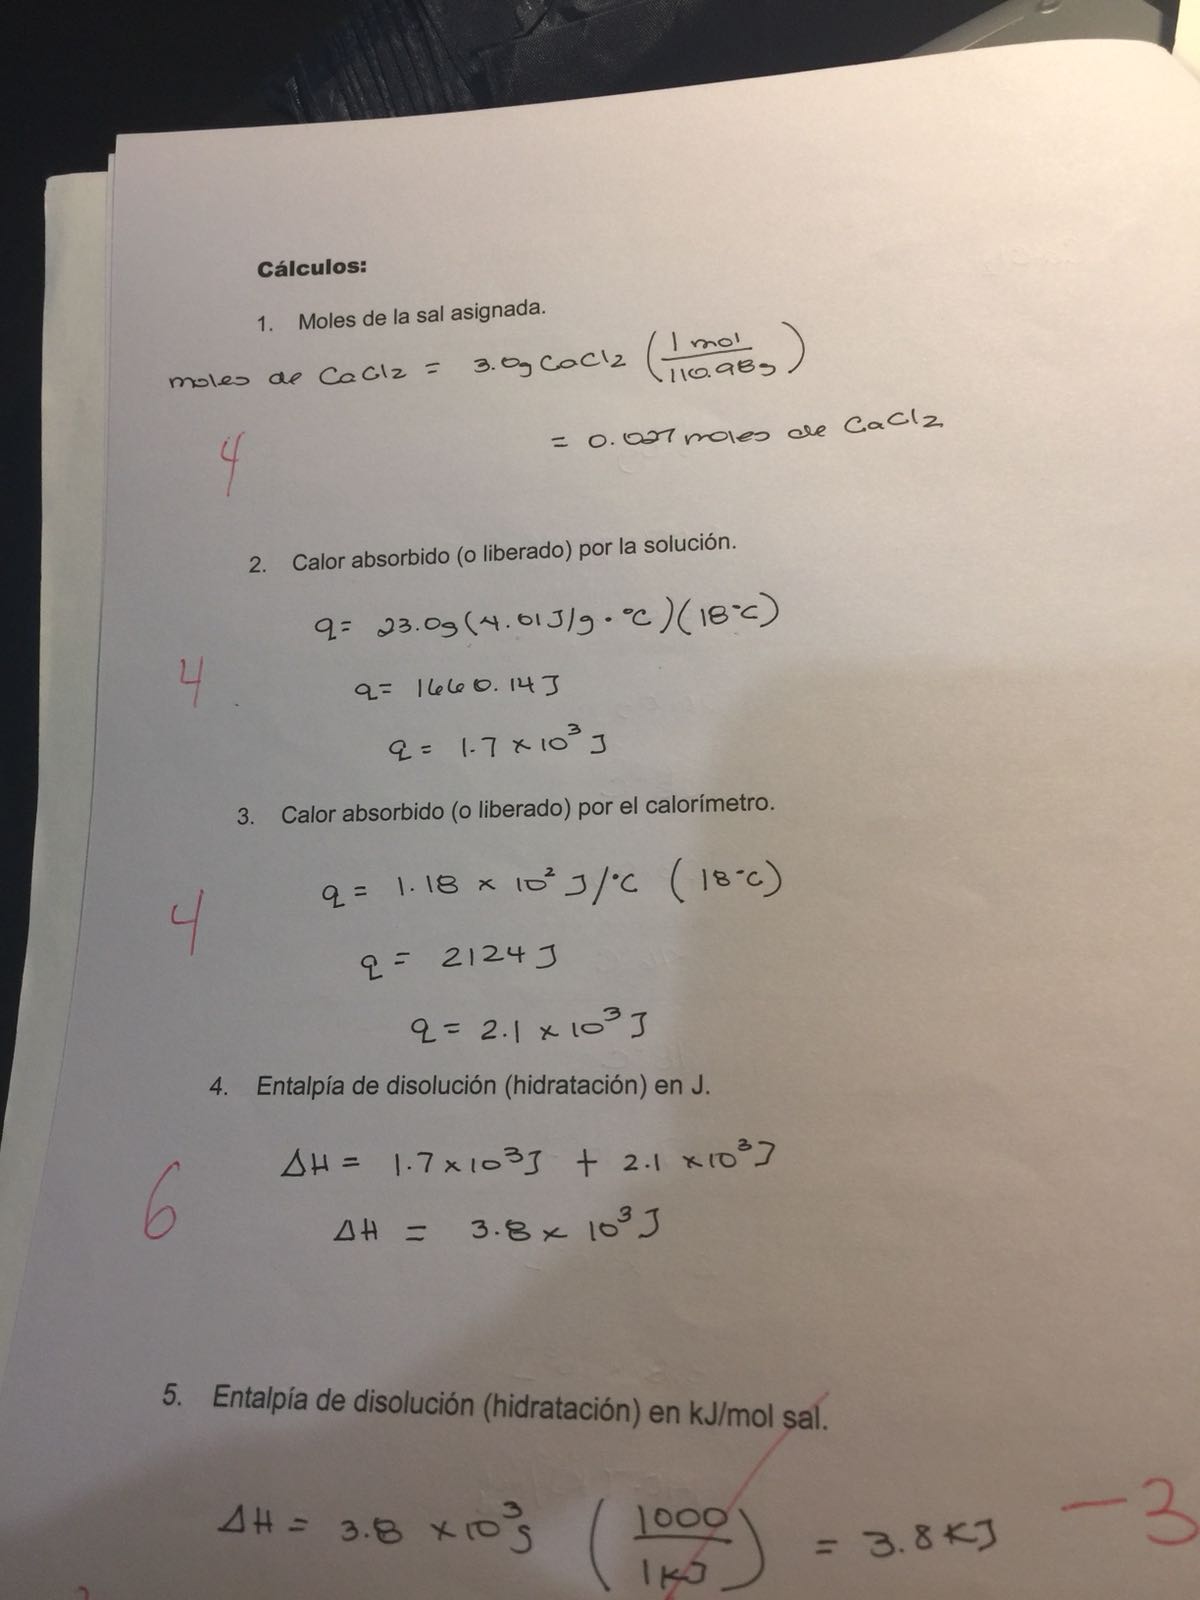 Cálculos:
1. Moles de la sal asignada.
moles de CaCl2 = 3.0g CaCl2 (1 mol / 110.98g)
= 0.027 moles de CaCl2
4
2. Calor absorbido (o liberado) por la solución.
q= 23.0g (4.01 J/g·°C)(18°C)
4
q= 1660.14 J
q = 1.7 × 10³ J
3. Calor absorbido (o liberado) por el calorímetro.
q = 1.18 × 10² J/°C (18°C)
4
q = 2124 J
q = 2.1 × 10³ J
4. Entalpía de disolución (hidratación) en J.
ΔH = 1.7 × 10³ J + 2.1 × 10³ J
6
ΔH = 3.8 × 10³ J
5. Entalpía de disolución (hidratación) en kJ/mol sal.
ΔH = 3.8 × 10³ J (1000 / 1 kJ) = 3.8 KJ
-3